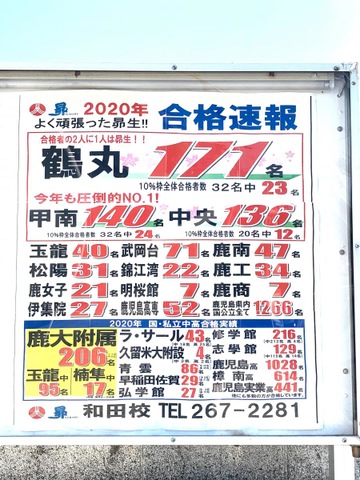 昴 2020年 合格速報
よく頑張った昴生!!
合格者の2人に1人は昴生!!
鶴丸 171名
10%枠全体合格者数 32名中23名
今年も圧倒的NO.1!
甲南140名 中央136名
10%枠全体合格者数 32名中24名 10%枠全体合格者数 20名中12名
玉龍40名 武岡台71名 鹿南47名
松陽31名 錦江湾22名 鹿工34名
鹿女子21名 明桜館7名 鹿商7名
伊集院27名 鹿児島高専52名 鹿児島県内国公立全て1266名
2020年 国・私立中高合格実績
鹿大附属 206名
玉龍中 95名 楠隼中 17名
ラ・サール43名 修学館216名
久留米大附設4名 志學館129名
青雲86名 鹿児島高1028名
早稲田佐賀29名 樟南高614名
弘学館27名 鹿児島実業高441名
他にも多数の方が合格しています。
昴 和田校 TEL 267-2281